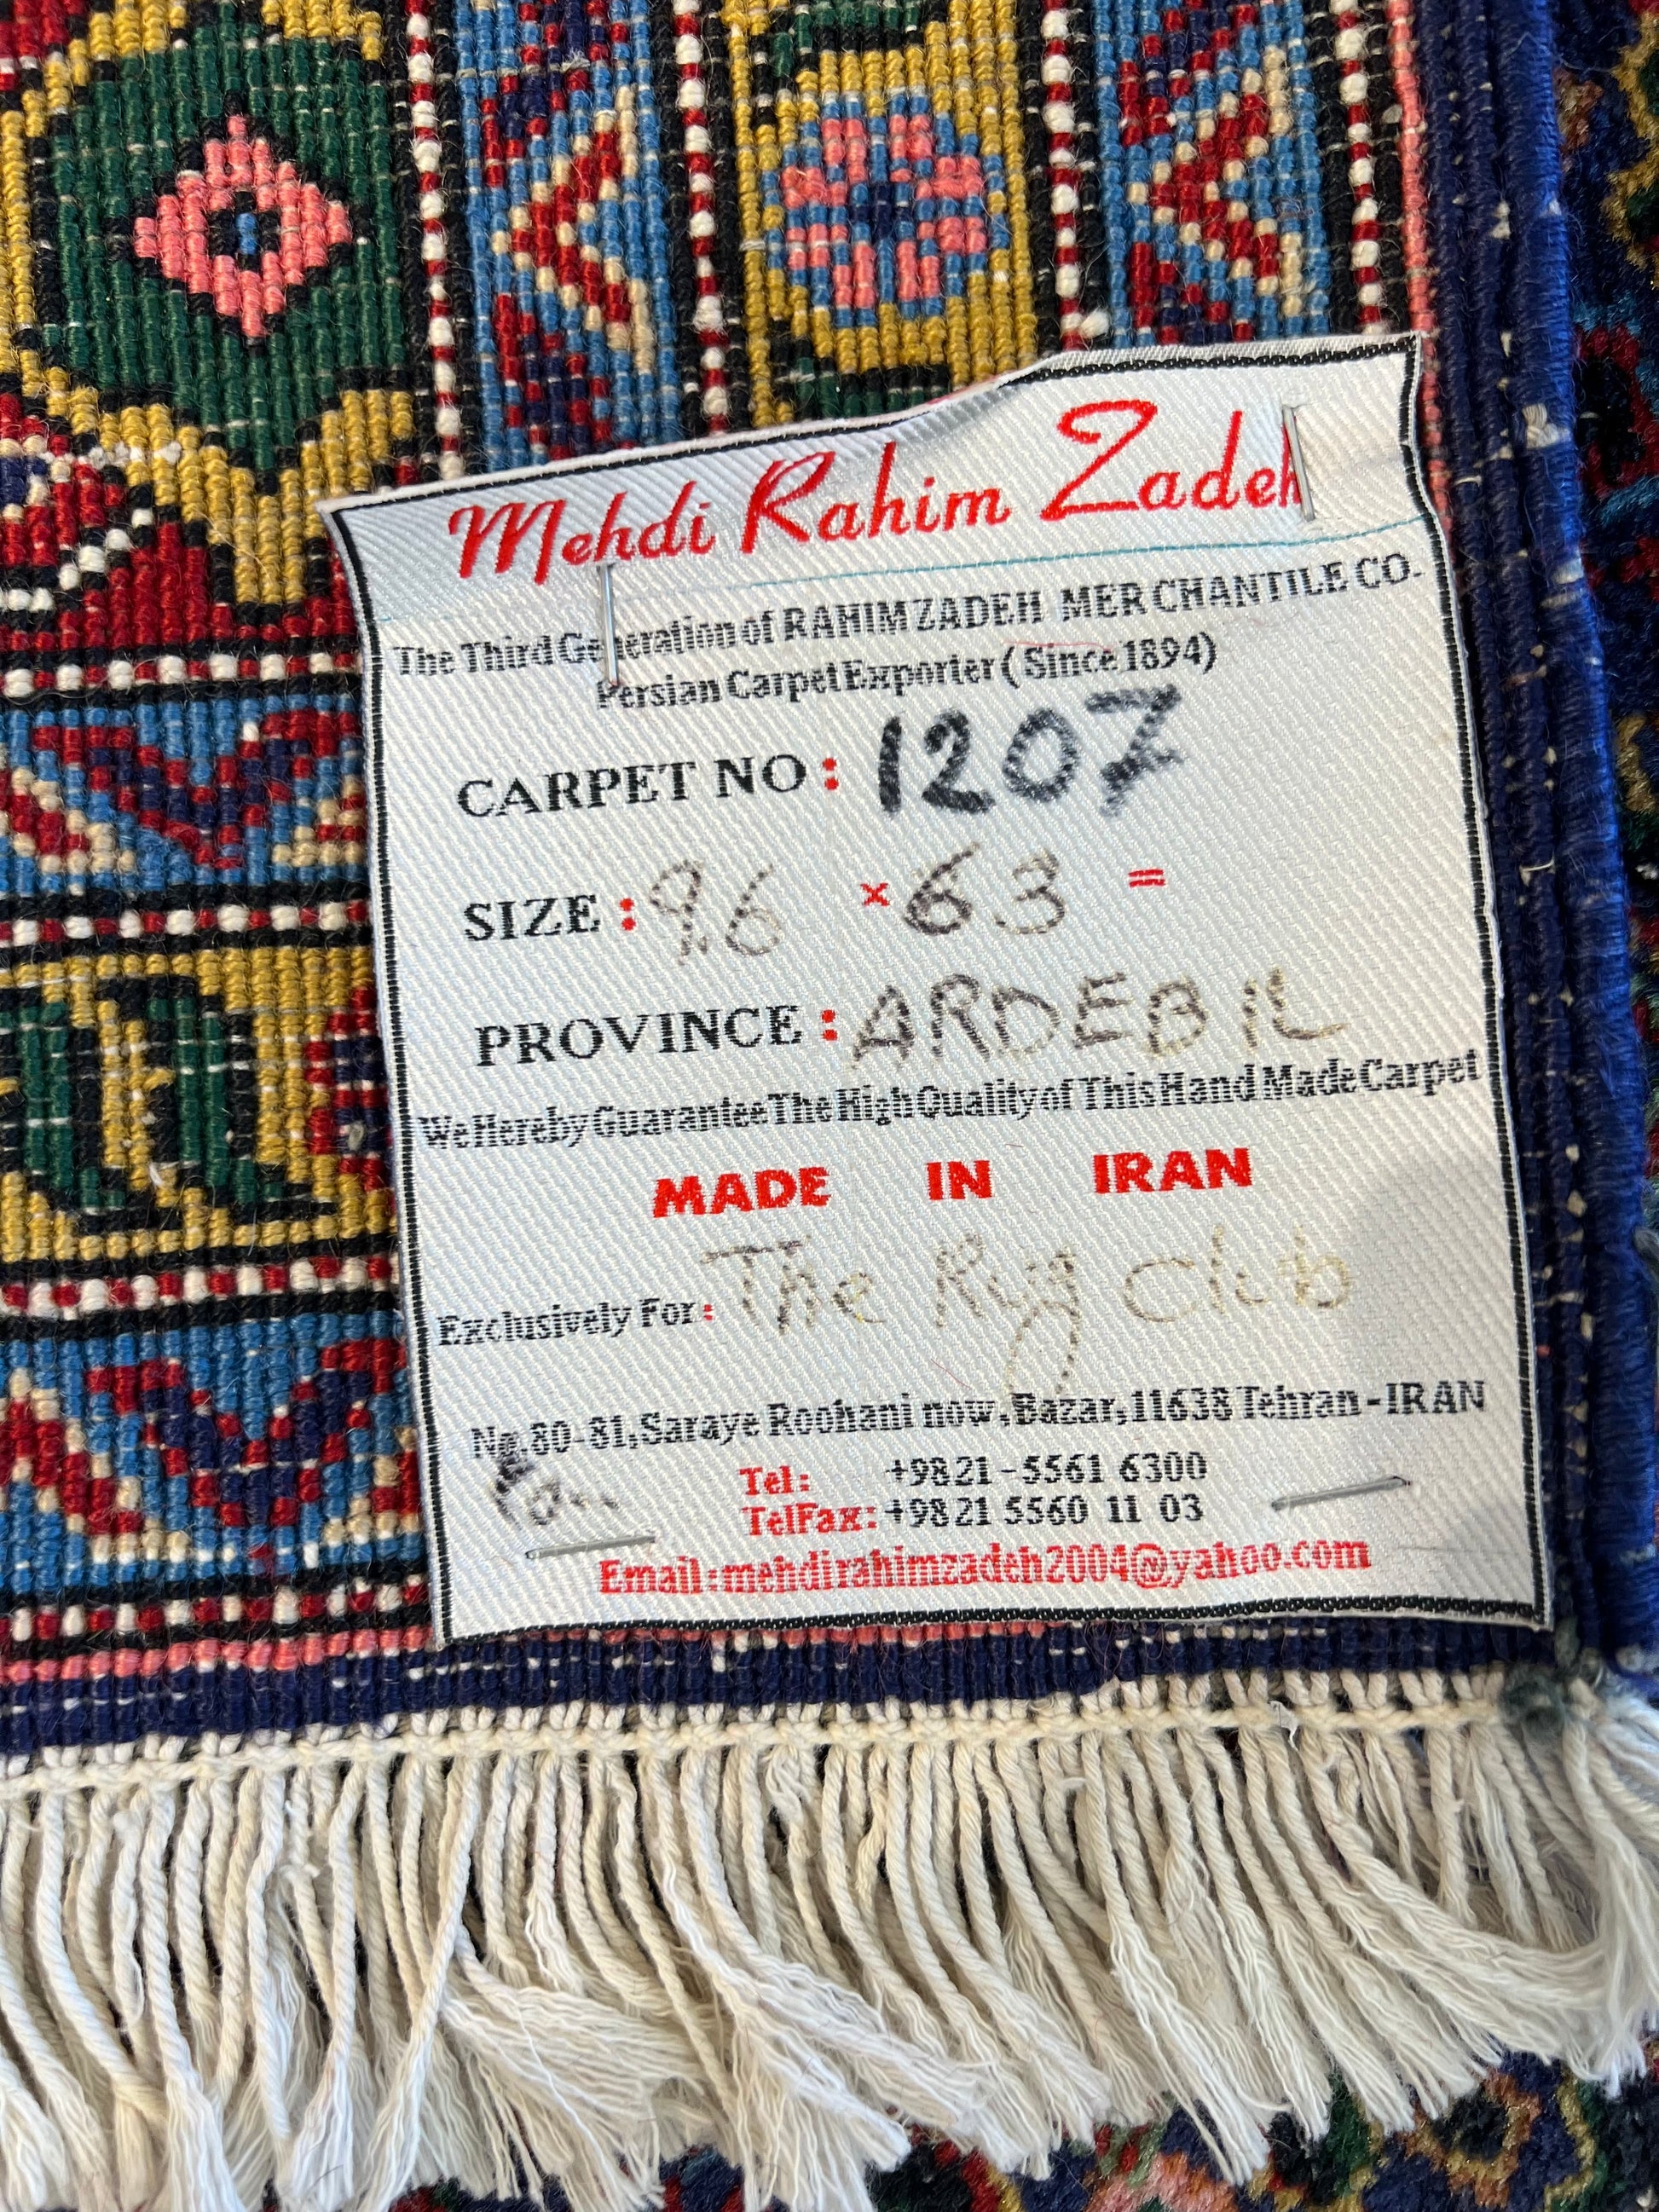 Mehdi Rahim Zadeh
The Third Generation of RAHIMZADEH MERCHANTILE CO.
Persian Carpet Exporter ( Since 1894)
CARPET NO : 1207
SIZE : 9.6 × 63 =
PROVINCE : ARDEBIL
We Hereby Guarantee The High Quality of This Hand Made Carpet
MADE IN IRAN
Exclusively For : The Rug Club
No.80-81,Saraye Roohani now,Bazar,11638 Tehran-IRAN
Tel: +9821-5561 6300
TelFax: +9821 5560 11 03
Email:mehdirahimzadeh2004@yahoo.com